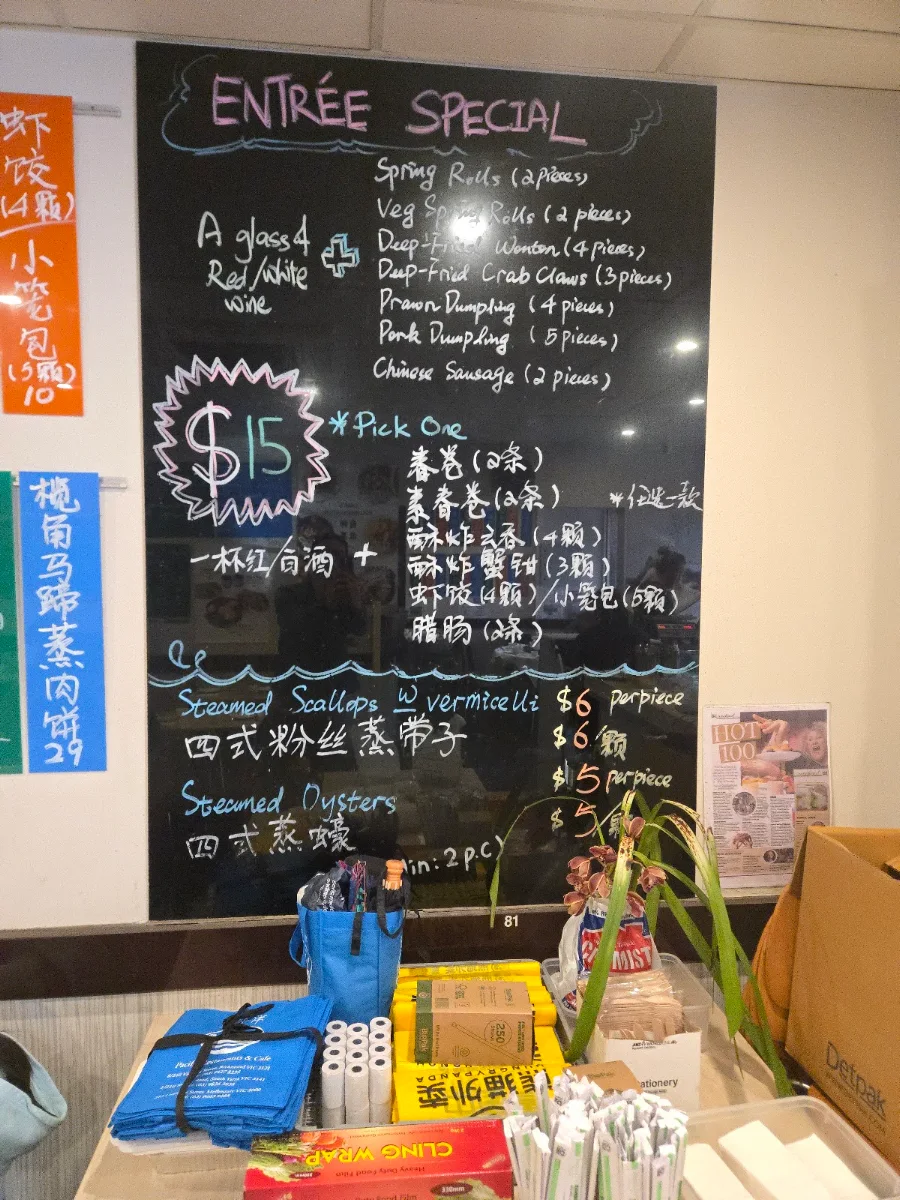 虾饺
(4颗)
小笼包
(5颗)
10
榄角马蹄蒸肉饼
29
ENTRÉE SPECIAL
A glass of
Red/White
wine
+
Spring Rolls (2 pieces)
Veg Spring Rolls (2 pieces)
Deep-Fried Wonton (4 pieces)
Deep-Fried Crab Claws (3 pieces)
Prawn Dumpling (4 pieces)
Pork Dumpling (5 pieces)
Chinese Sausage (2 pieces)
$15
*Pick One
春卷 (2条)
素春卷 (2条)
*任选一款
酥炸云吞 (4颗)
一杯红/白酒 +
酥炸蟹钳 (3颗)
虾饺 (4颗) / 小笼包 (5颗)
腊肠 (2条)
Steamed Scallops w vermicelli $6 perpiece
四式粉丝蒸带子 $6 颗
$5 perpiece
Steamed Oysters
四式蒸蠔 $5
in: 2 p.c)
81
HOT
100
250
熊猫外卖
CLING WRAP
Heavy Duty Food Film
330mm
Detpak